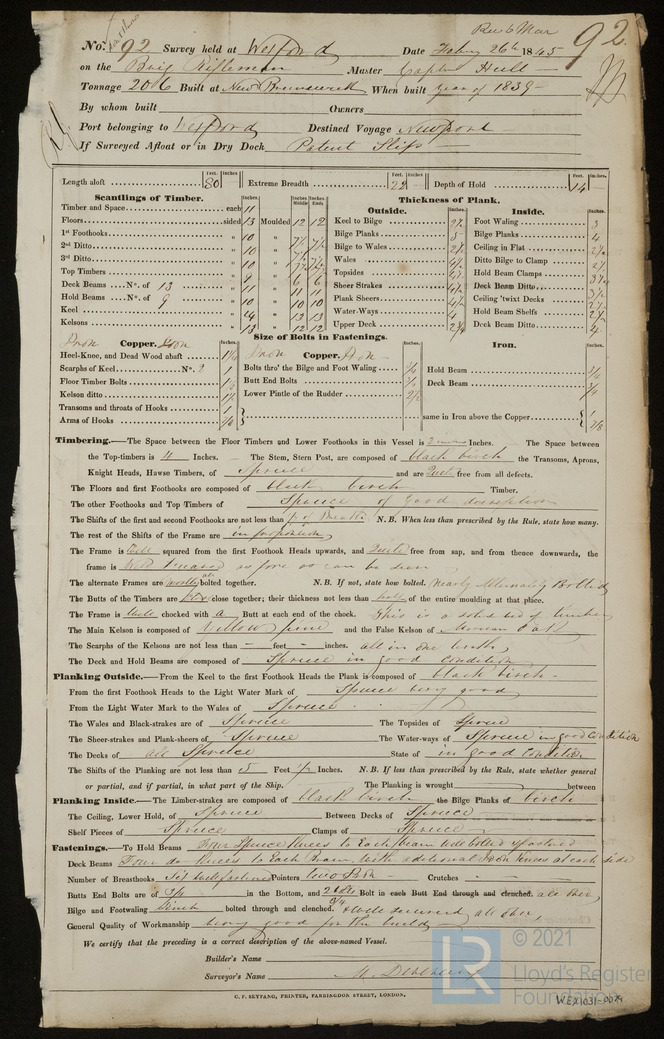 No. 92 Survey held at Wexford Date Febry 26th 1845
92
on the Brig Rifleman Master Captn Hull
Tonnage 206 Built at New Brunswick When built year of 1839
By whom built Owners
Port belonging to Wexford Destined Voyage Newport
If Surveyed Afloat or in Dry Dock Patent Slip
Feet. Inches. Feet. Inches. Feet. Inches.
Length aloft 80 Extreme Breadth 22 Depth of Hold 14
Scantlings of Timber. Thickness of Plank.
Outside. Inside.
Timber and Space each 11
Floors sided 13 Moulded 12 12
1st Foothooks " 10 "
2nd Ditto " 10 "
3rd Ditto " 10 "
Top Timbers "
Deck Beams No. of 13 "
Hold Beams No. of 9 " 10 " 10 10
Keel " 13 13
Kelsons " 13 " 12 12
Keel to Bilge
Bilge Planks 5
Bilge to Wales
Wales
Topsides
Sheer Strakes
Plank Sheers
Water-Ways 4
Upper Deck
Foot Waling 3
Bilge Planks 4
Ceiling in Flat
Ditto Bilge to Clamp
Hold Beam Clamps
Deck Beam Ditto
Ceiling 'twixt Decks
Hold Beam Shelfs
Deck Beam Ditto 4
Size of Bolts in Fastenings.
Iron Copper. Iron Copper. Iron.
Heel-Knee, and Dead Wood abaft
Scarphs of Keel No. 1
Floor Timber Bolts
Kelson ditto
Transoms and throats of Hooks
Arms of Hooks
Bolts thro' the Bilge and Foot Waling
Butt End Bolts
Lower Pintle of the Rudder
Hold Beam
Deck Beam
same in Iron above the Copper
Timbering.—The Space between the Floor Timbers and Lower Foothooks in this Vessel is Inches. The Space between
the Top-timbers is 4 Inches. — The Stem, Stern Post, are composed of black birch the Transoms, Aprons,
Knight Heads, Hawse Timbers, of Spruce and are Quite free from all defects.
The Floors and first Foothooks are composed of black birch Timber.
The other Foothooks and Top Timbers of Spruce of good description
The Shifts of the first and second Foothooks are not less than N. B. When less than prescribed by the Rule, state how many.
The rest of the Shifts of the Frame are in proportion
The Frame is Well squared from the first Foothook Heads upwards, and Quite free from sap, and from thence downwards, the
frame is as can be seen
The alternate Frames are bolted together. N. B. If not, state how bolted. Nearly Alternately Bolted
The Butts of the Timbers are close together; their thickness not less than of the entire moulding at that place.
The Frame is Well chocked with a Butt at each end of the chock. This is a solid bed of timber
The Main Kelson is composed of Yellow pine and the False Kelson of American Oak
The Scarphs of the Kelsons are not less than — feet — inches. all in one
The Deck and Hold Beams are composed of Spruce in good condition
Planking Outside.—From the Keel to the first Foothook Heads the Plank is composed of black birch
From the first Foothook Heads to the Light Water Mark of Spruce very good
From the Light Water Mark to the Wales of Spruce
The Wales and Black-strakes are of Spruce The Topsides of Spruce
The Sheer-strakes and Plank-sheers of Spruce The Water-ways of Spruce in good Condition
The Decks of all Spruce State of in good Condition
The Shifts of the Planking are not less than 5 Feet Inches. N. B. If less than prescribed by the Rule, state whether general
or partial, and if partial, in what part of the Ship. The Planking is wrought between
Planking Inside.—The Limber-strakes are composed of black birch the Bilge Planks of birch
The Ceiling, Lower Hold, of Spruce Between Decks of Spruce
Shelf Pieces of Spruce Clamps of Spruce
Fastenings.—To Hold Beams Four Spruce Knees to Each beam well bolted & fastened
Deck Beams Four do Knees to Each Beam, with additional Iron Knees at each side
Number of Breasthooks Six well fastened Pointers two pair Crutches —
Butts End Bolts are of 3/4 in the Bottom, and Bolt in each Butt End through and clenched. all over
Bilge and Footwaling bolted through and clenched. & well secured all over
General Quality of Workmanship being good for the build
We certify that the preceding is a correct description of the above-named Vessel.
Builder's Name
Surveyor's Name
C. F. SEYFANG, PRINTER, FARRINGDON STREET, LONDON.
WEX1031-0079
LR © 2021
Lloyd's Register
Foundation